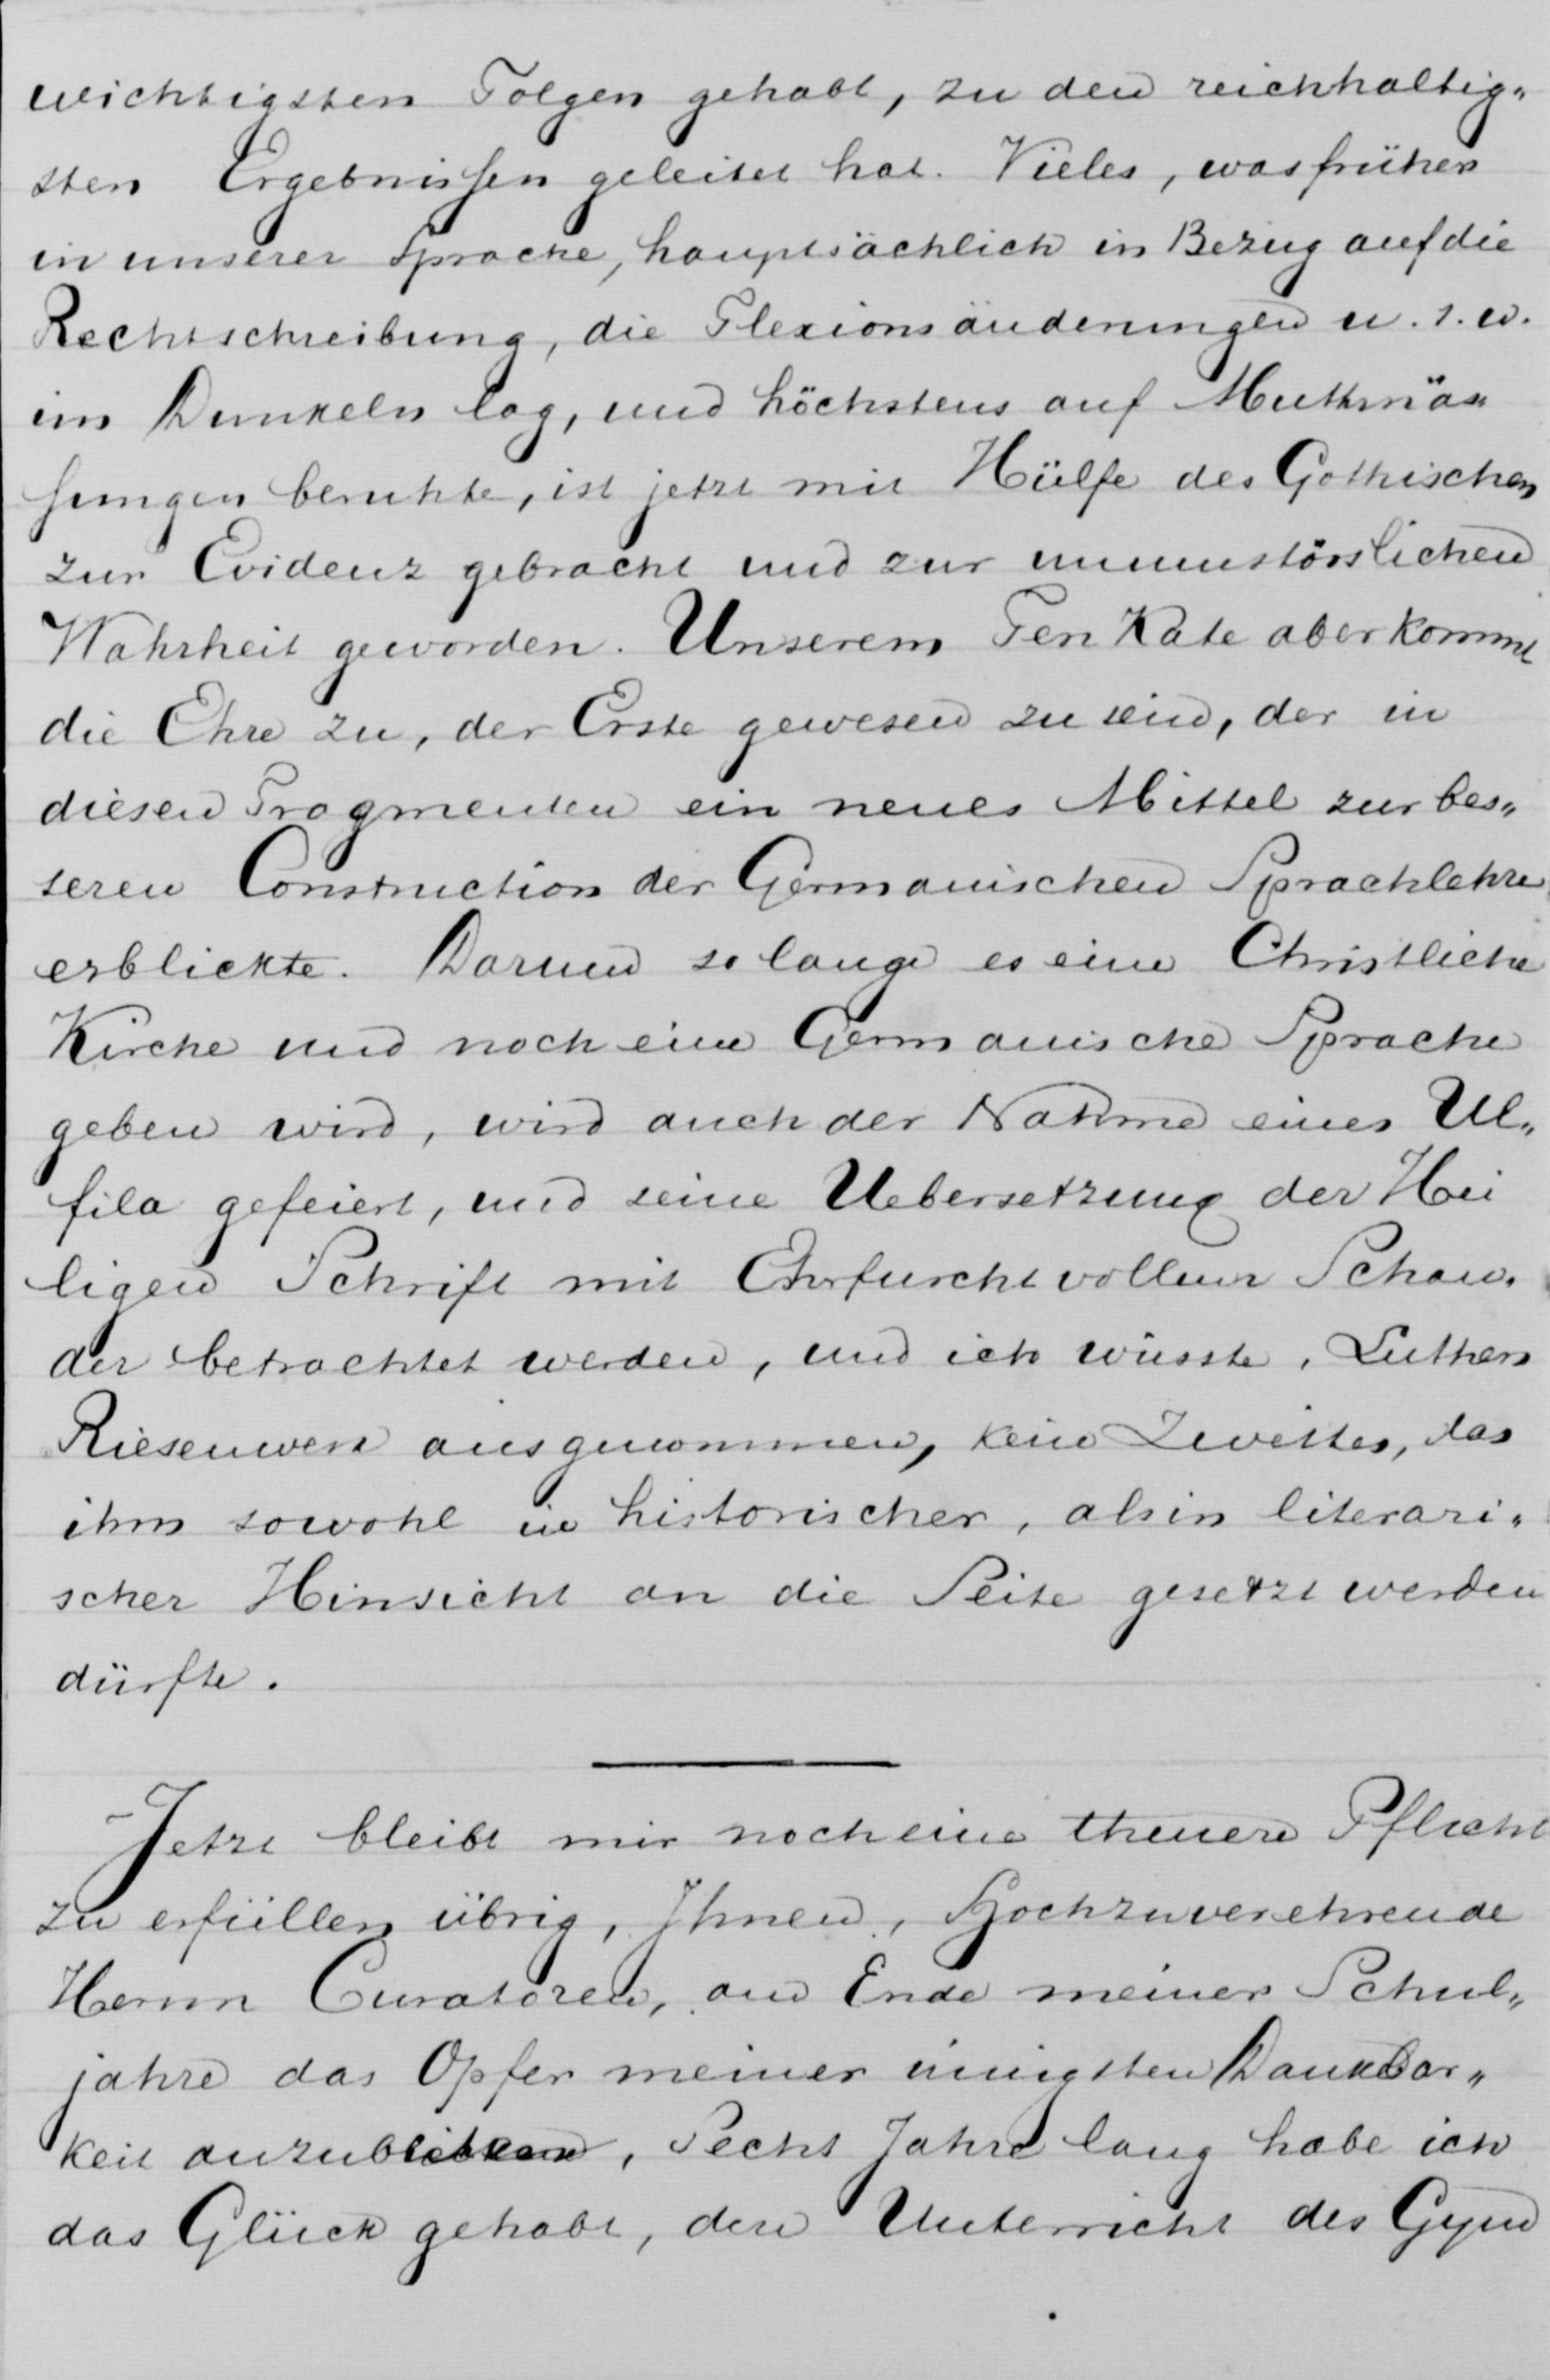 wichtigsten Folgen gehabt, zu den reichhaltig„
sten Ergebnissen geleitet hat. Vieles, was früher
in unserer Sprache, hauptsächlich in Bezug auf die
Rechtschreibung, die Flexionsänderungen u. s. w.
im Dunkeln lag, und höchstens auf Muthmäs„
sungen beruhte, ist jetzt mit Hülfe des Gothischen
zur Evidenz gebracht und zur unumstörslichen
Wahrheit geworden. Unserem Ten Kate aber kommt
die Ehre zu, der Erste gewesen zu sein, der in
diesen Fragmenten ein neues Mittel zur bes„
seren Construction der Germanischen Sprachlehre
erblickte. Darum so lange es eine Christliche
Kirche und noch eine Germanische Sprache
geben wird, wird auch der Nahme eines Ul„
fila gefeiert, und seine Uebersetzung der Hei
ligen Schrift mit Ehrfurchtvollem Schau„
der betrachtet werden, und ich wüsste, Luthers
Riesenwerk ausgenommen, kein Zweites, das
ihm sowohl in historischer, als in literari„
scher Hinsicht an die Seite gesetzt werden
dürfte.
Jetzt bleibt mir noch eine theuere Pflicht
zu erfüllen übrig, Ihnen, Hochzuverehrende
Herrn Curatoren, am Ende meiner Schul„
jahre das Opfer meiner innigsten Dankbar„
keit , Sechs Jahre lang habe ich
das Glück gehabt, den Unterricht des Gym